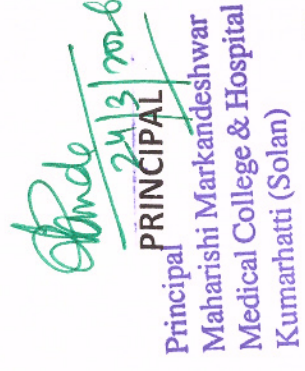 24/3/2026
PRINCIPAL
Principal
Maharishi Markandeshwar
Medical College & Hospital
Kumarhatti (Solan)